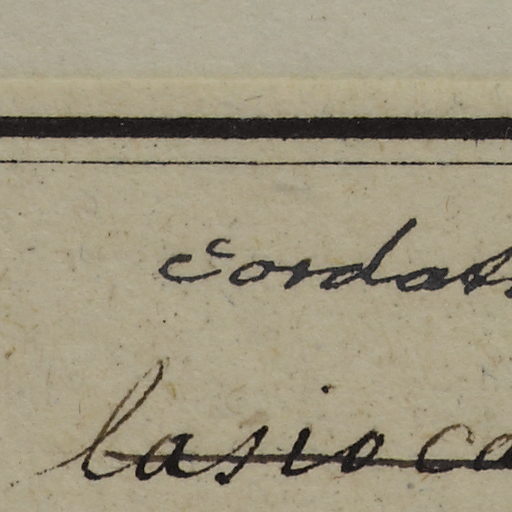 cordat
lasioca